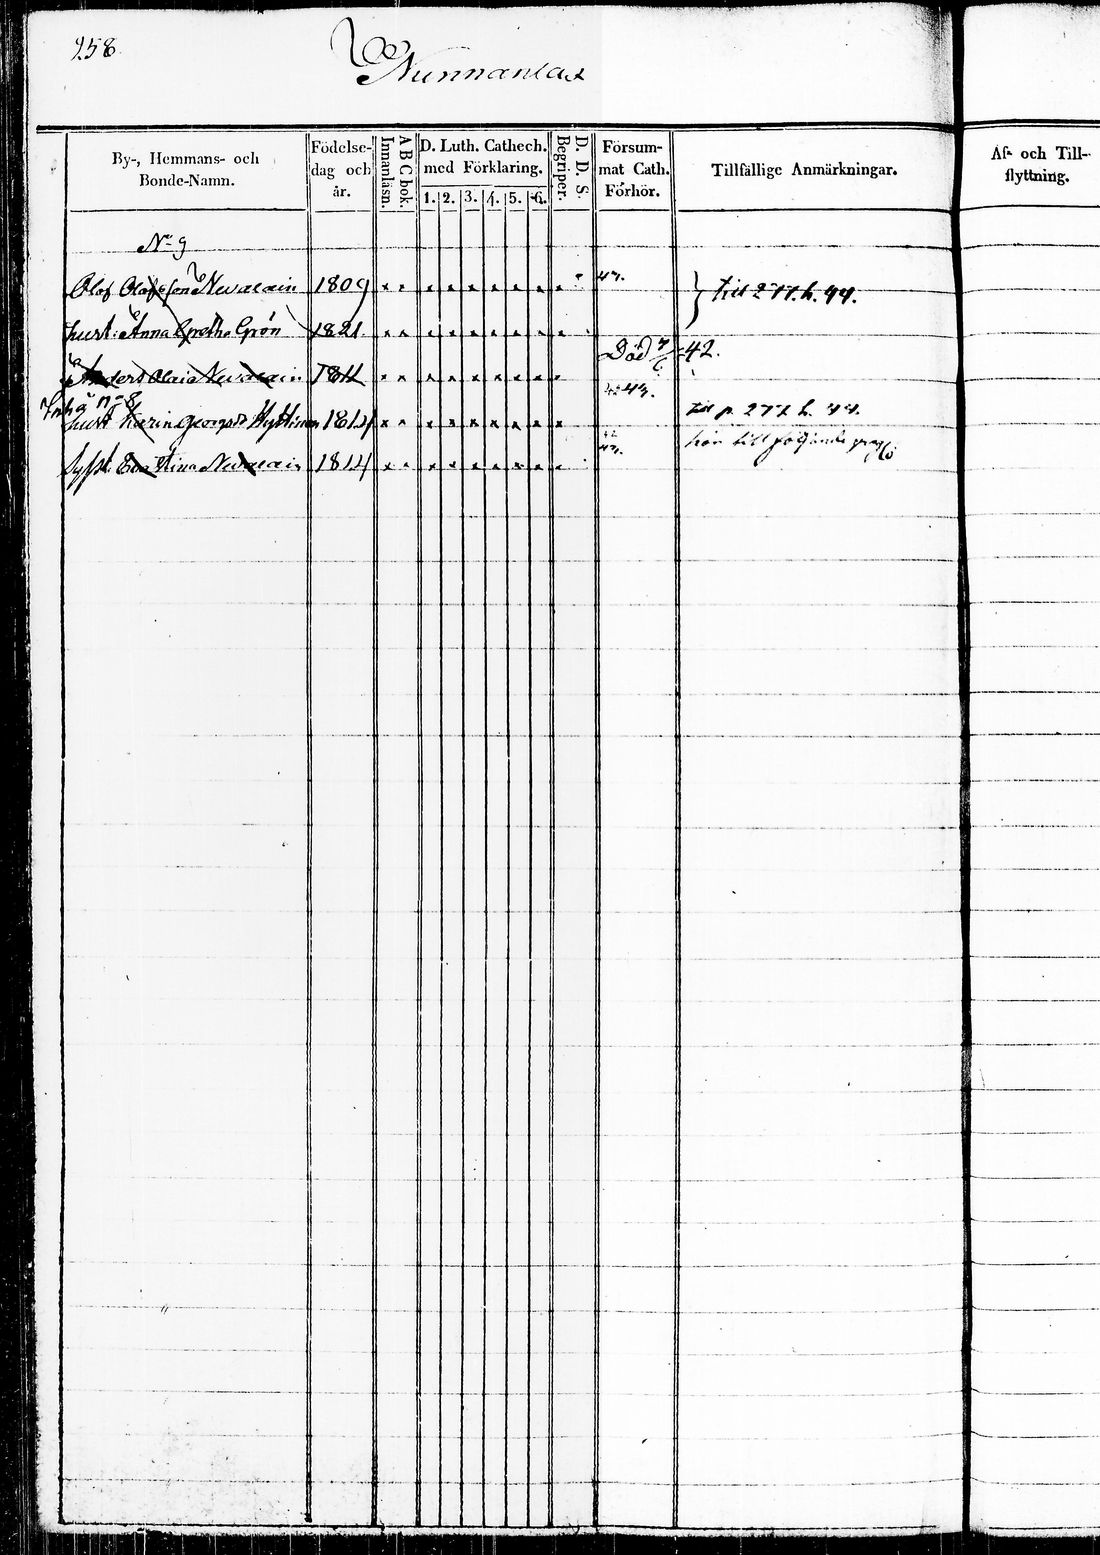 258
Nunnanlax
By-, Hemmans- och Bonde-Namn.
Födelse-dag och år.
Innanläsn.
A B C bok.
D. Luth. Cathech. med Förklaring.
1. 2. 3. 4. 5. 6.
Begriper.
D. D. S.
Försum-mat Cath. Förhör.
Tillfällige Anmärkningar.
Af- och Till-flyttning.
No 9
Olof Olofsson Nevalain 1809 x x x x x x x x x 43. } till 277. h. 44.
hust: Anna Gretha Grön 1821 x x x x x x x x x
Anders Olai Nevalain 1811 x x x x x x x x x Död 42.
Enka n=8
hust Karin Georgsdr Hyttinen 1814 x x x x x x x x x 43. till p. 277 h. 44.
Syst: Eva Stina Nevalain 1814 x x x x x x x x x 42 43. till följande